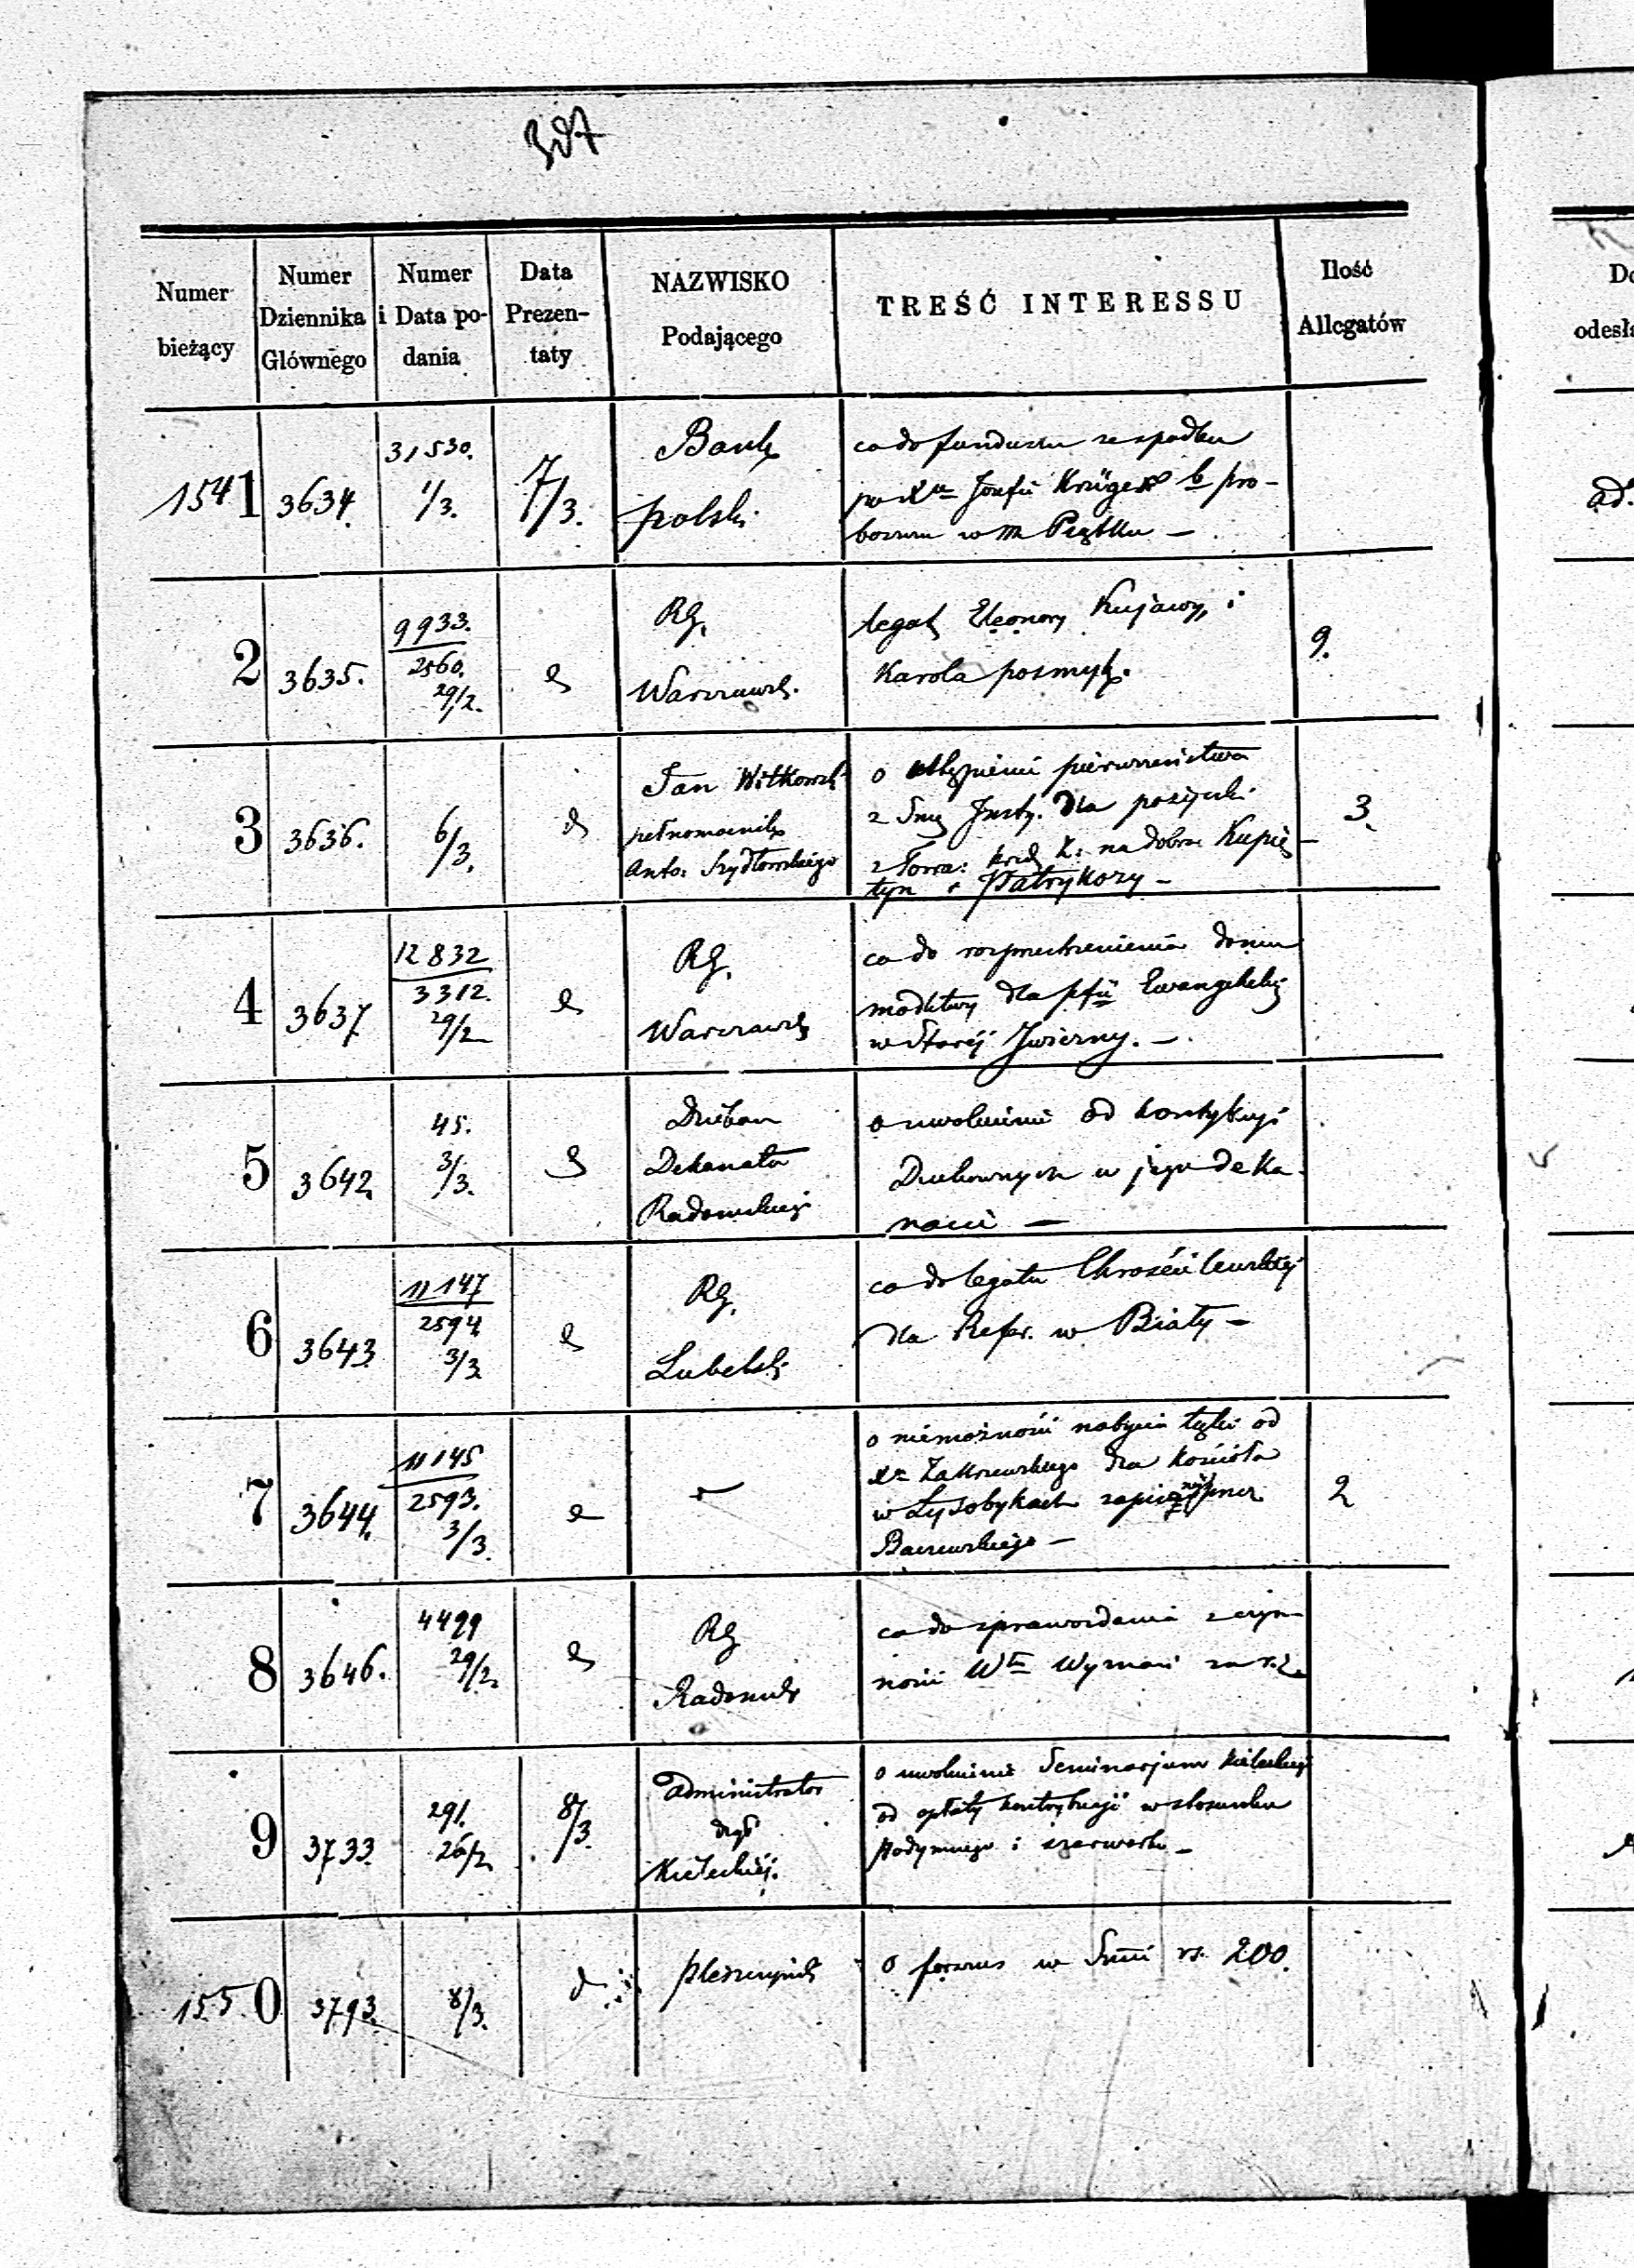 Numer bieżący
Numer Dziennika Głównego
Numer i Data podania
Data Prezentaty
NAZWISKO Podającego
TREŚĆ INTERESSU
Ilość Allegatów
1541
3634.
31530.
1/3.
7/3.
Bank
polski
co do funduszu ze spadku
po Xu Józefie Krüger b pro-
boszczu w m Piątku —
2
3635.
9933.
2560.
29/2.
RG.
Warszawsk.
legat Eleonory Kujawy, i
Karola
9.
3
3636.
6/3.
Jan Witkowski
pełnomocnik
Anto: Szydłowskiego
o ustąpienie pierwszeństwa
dla pożyczki
z Towa: kred. Z: na dobra Kupię-
tyn i Patrykozy —
3.
4
3637
12832
3312.
29/2
RG.
Warszawsk
co do rozprzestrzenienia domu
modlitwy dla pfii Ewangelickiej
w Starej Iwiczny. —
5
3642
45.
3/3.
Dziekan
Dekanatu
Radomskiego
o uwolnienie od kontrybucji
Duchownych w jego deka-
nacie —
6
3643
11147
2594
3/3
RG.
Lubelski
co do legatu Chrościelewskiej
dla Refor. w Białej —
7
3644.
11145
2593.
3/3.
o niemożności nabycia łąki od
Xa Zakrzewskiego dla kościoła
w Łysobykach przez
Baczewskiego —
2
8
3646.
4499
29/2.
RG
Radomsk
co do sprawozdania z czyn-
ności Wu Wyznań za r.z.
9
3733.
291.
26/2
8/3.
Administrator
dyec
Kieleckiej.
o uwolnienie Seminarjum Kieleckiego
od opłaty kontrybucji w stosunku
podymnego i szarwarku —
1550
3793.
8/3.
o w rs. 200.